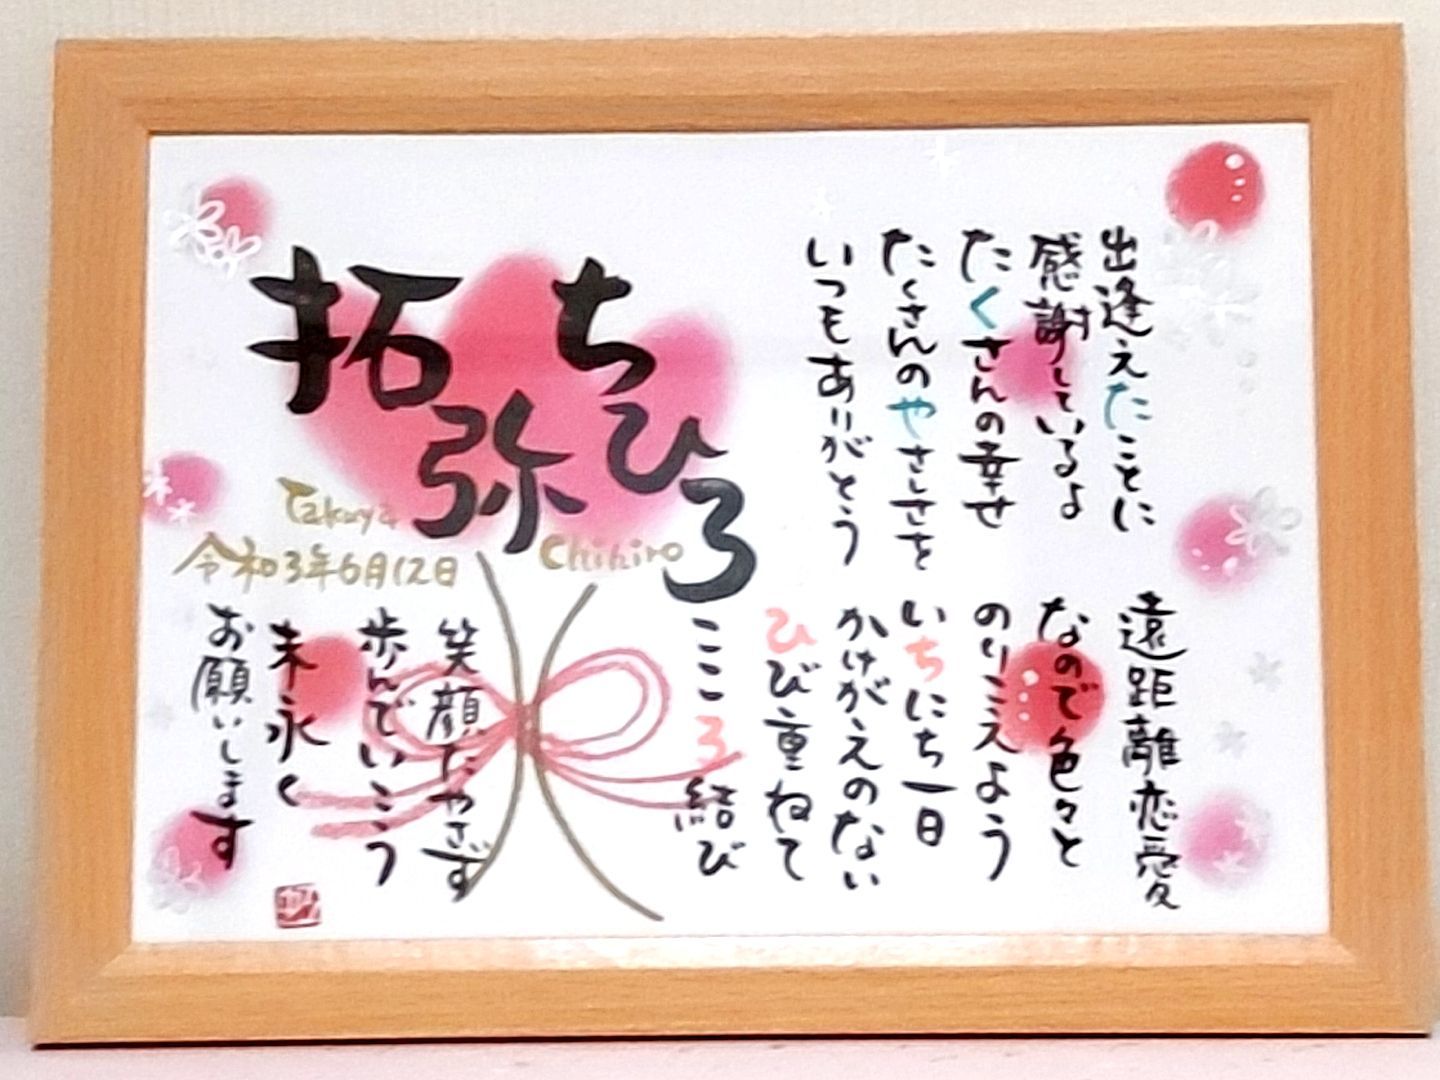 拓弥
ちひろ
Takuya
Chihiro
令和3年6月12日
出逢えたことに
感謝しているよ
たくさんの幸せ
たくさんのやさしさを
いつもありがとう
遠距離恋愛
なので色々と
のりこえよう
いちにち一日
かけがえのない
ひび重ねて
こころ結び
笑顔たやさず
歩んでいこう
末永く
お願いします